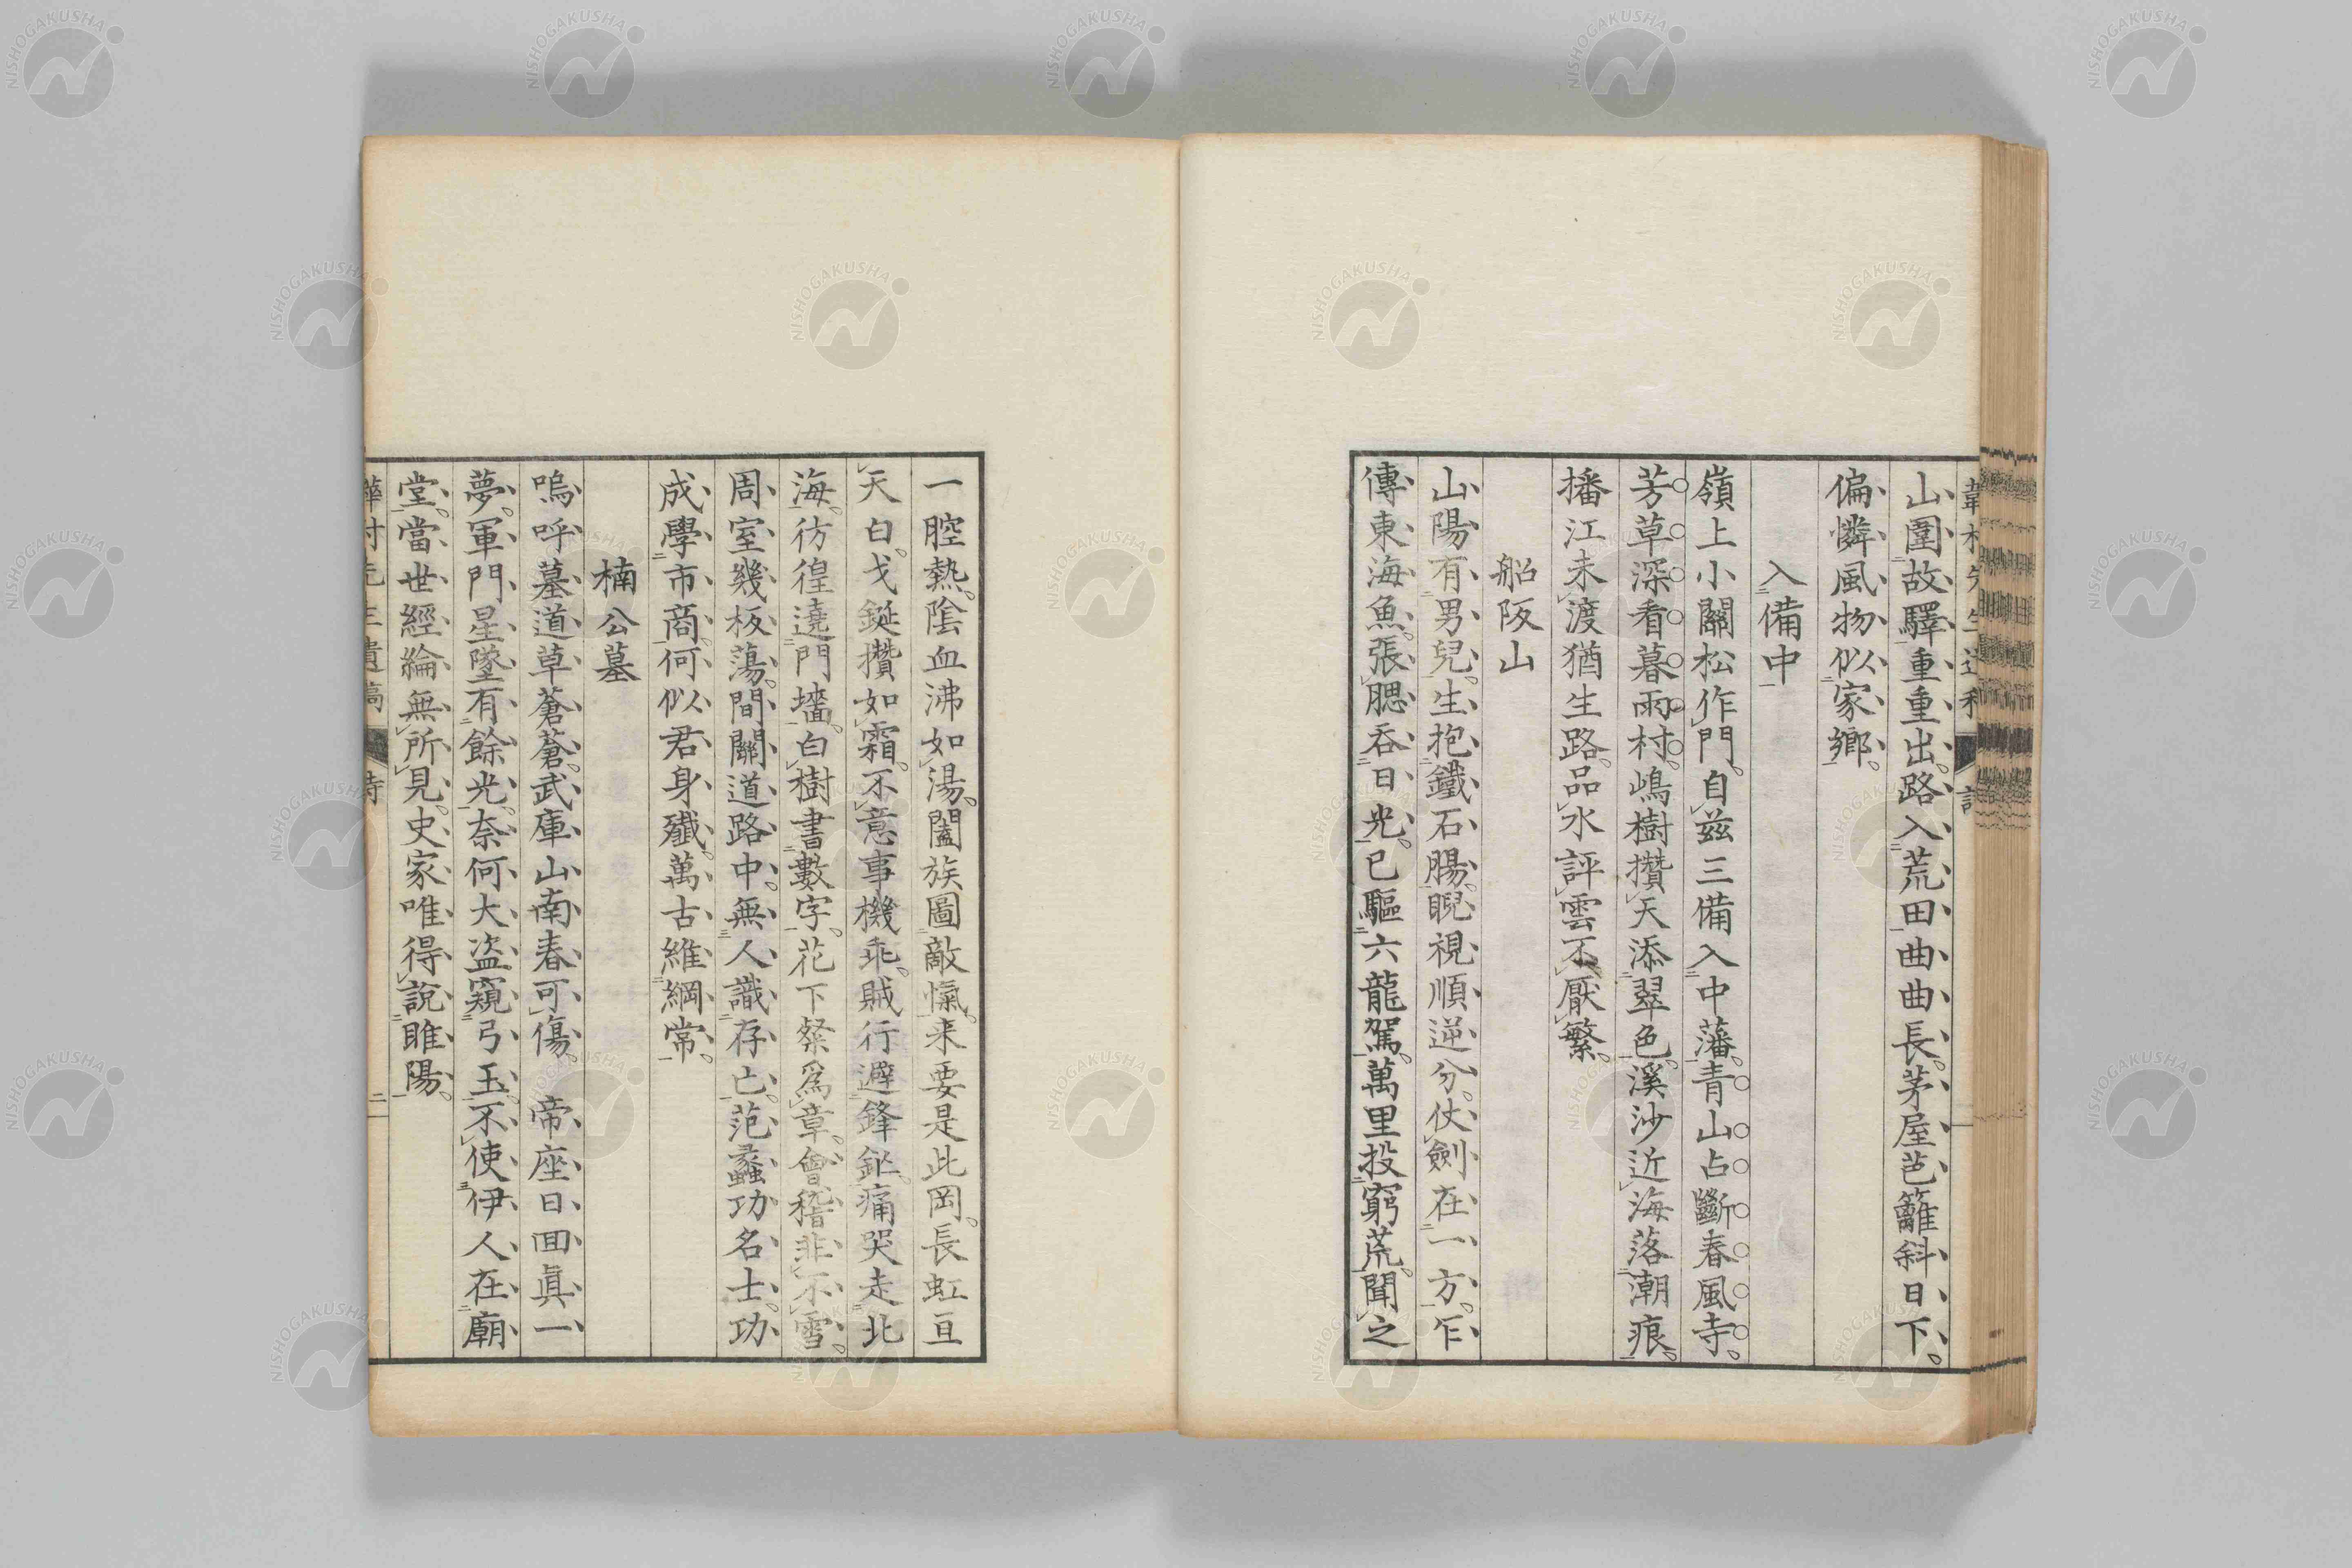 山圍故驛重重出。路入荒田曲曲長。茅屋芭籬斜日下。
偏憐風物似家鄉。
入備中
嶺上小關松作門。自茲三備入中藩。青山占斷春風寺。
芳草深看暮雨村。嶋樹攢天添翠色。溪沙近海落潮痕。
播江未渡猶生路。品水評雲不厭繁。
船阪山
山陽有男兒。生抱鐵石腸。睨視順逆分。仗劍在一方。乍
傳東海魚。張腮吞日光。已驅六龍駕。萬里投窮荒。聞之
一腔熱。陰血沸如湯。闔族圖敵愾。来要是此岡。長虹亘
天白。戈鋋攢如霜。不意事機乖。賊行避鋒鋩。痛哭走北
海。彷徨遶門墻。白樹書數字。花下粲為章。會稽非不雪。
周室幾板蕩。間關道路中。無人識存亡。范蠡功名士。功
成學市商。何似君身殲。萬古維綱常。
楠公墓
嗚呼墓道草蒼蒼。武庫山南春可傷。帝座日回真一
夢。軍門星墜有餘光。奈何大盗窺弓玉。不使伊人在廟
堂。當世經綸無所見。史家唯得說睢陽。
二
NISHOGAKUSHA